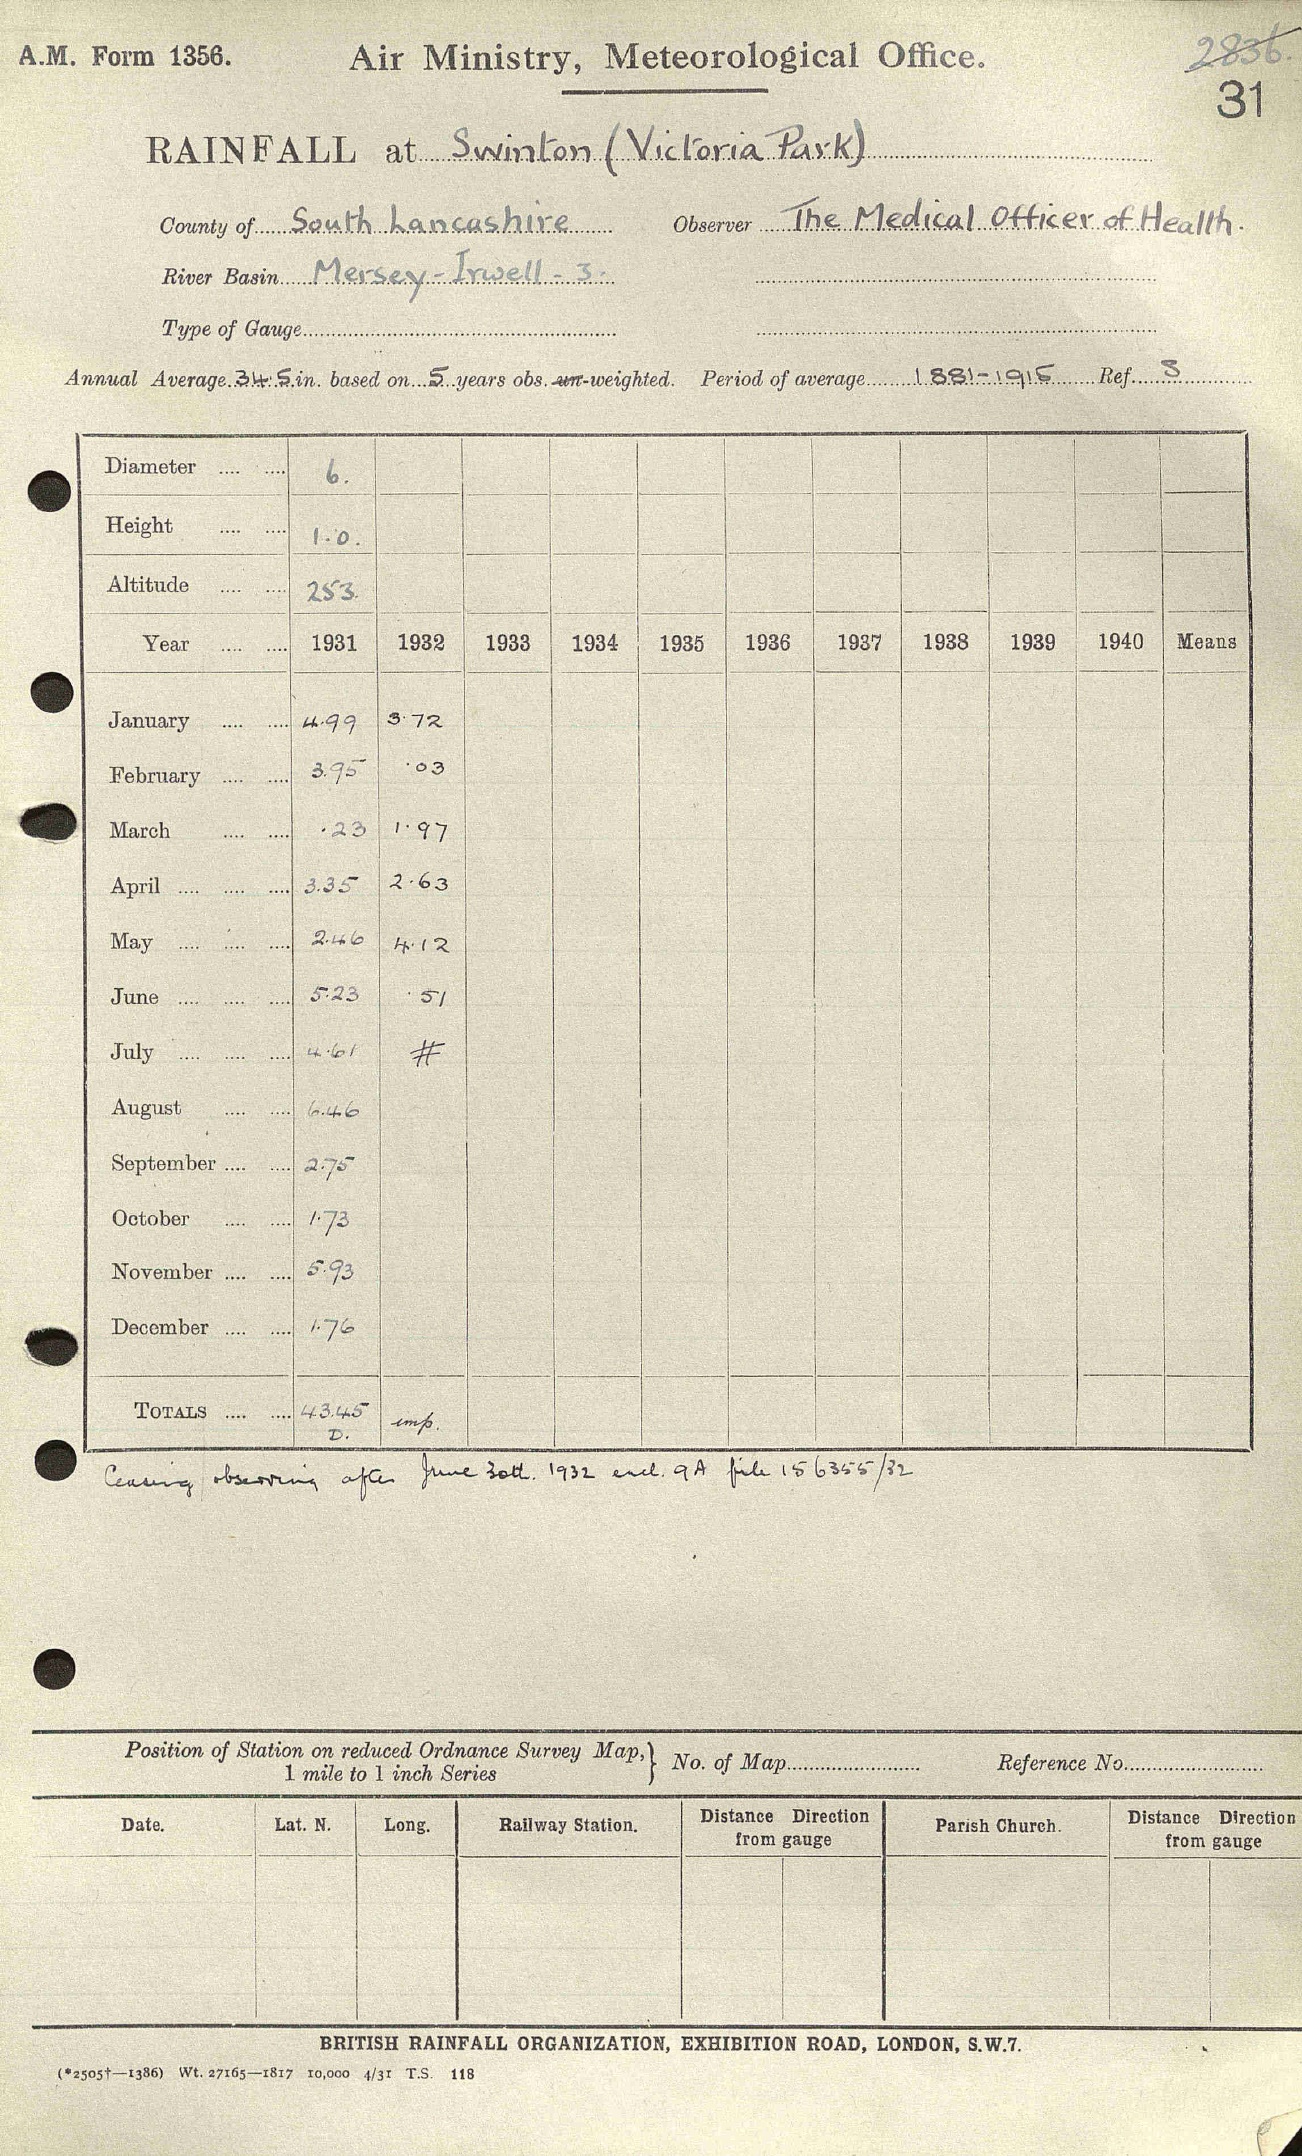 A.M. Form 1356. Air Ministry, Meteorological Office. 2836.
31
RAINFALL at Swinton (Victoria Park)
County of South Lancashire Observer The Medical Officer of Health.
River Basin Mersey - Irwell - 3.
Type of Gauge
Annual Average 34.5 in. based on 5 years obs. un-weighted. Period of average 1881-1915 Ref. S
Diameter .... .... 6.
Height .... .... 1.0.
Altitude .... .... 253.
Year .... .... 1931 1932 1933 1934 1935 1936 1937 1938 1939 1940 Means
January .... .... 4.99 3.72
February .... .... 3.95 .03
March .... .... .23 1.97
April .... .... .... 3.35 2.63
May .... .... .... 2.46 4.12
June .... .... .... 5.23 .51
July .... .... .... 4.61 #
August .... .... 6.46
September .... .... 2.75
October .... .... 1.73
November .... .... 5.93
December .... .... 1.76
TOTALS .... .... 43.45 imp.
D.
Ceasing observing after June 30th. 1932 encl. 9A file 156355/32
Position of Station on reduced Ordnance Survey Map, } No. of Map Reference No.
1 mile to 1 inch Series
Date. Lat. N. Long. Railway Station. Distance Direction Parish Church. Distance Direction
from gauge from gauge
BRITISH RAINFALL ORGANIZATION, EXHIBITION ROAD, LONDON, S.W.7.
(*2505†—1386) Wt. 27165—1817 10,000 4/31 T.S. 118